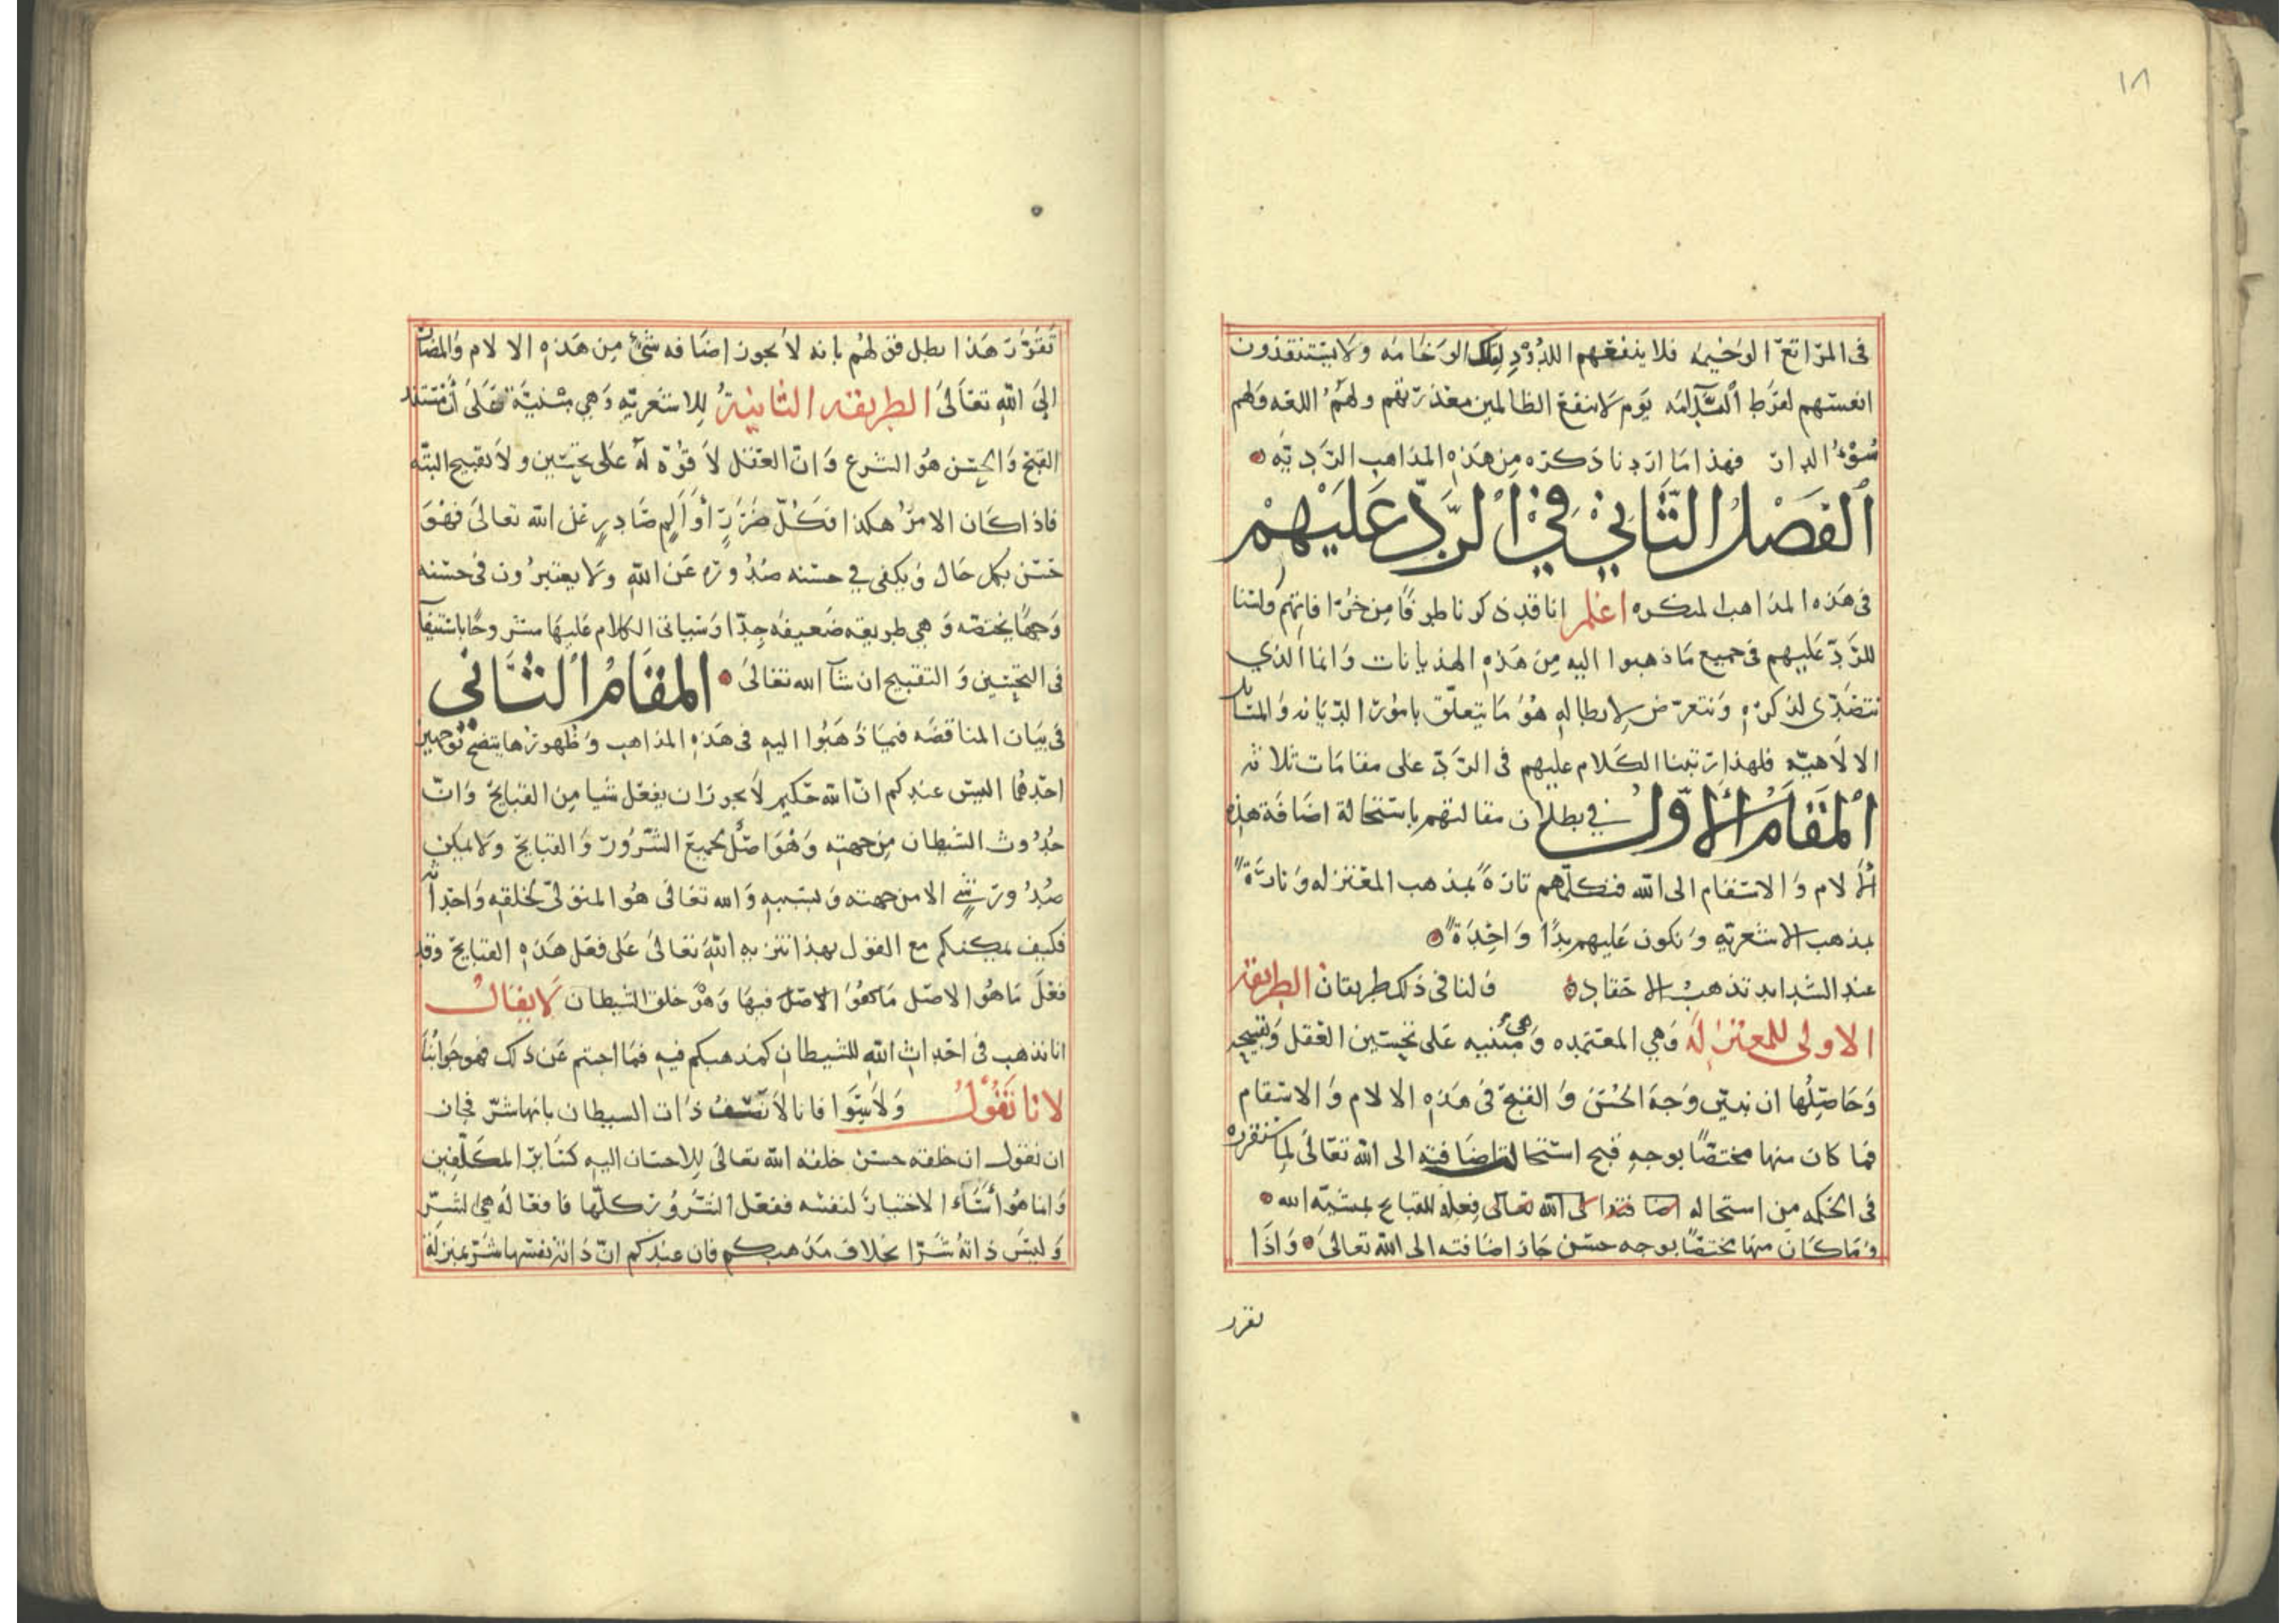 ١٨
في المراتع الوخيمه فلا ينفعهم اللدود لتلك الوخامه ولا يستنقذون
انفسهم لفرط الندامه يوم لا ينفع الظالمين معذرتهم ولهم اللعنه ولهم
سوء الدار فهذا ما اردنا ذكره من هذه المذاهب الرديه
الفصل الثاني في الرد عليهم
في هذه المذاهب المنكره اعلم انا قد ذكرنا طرفا من خرافاتهم ولسنا
للرد عليهم في جميع ما ذهبوا اليه من هذه الهذيانات وانما الذي
نتصدى لذكره ونتعرض لابطاله هو ما يتعلق بامور الديانه والمسايل
الالاهيه فلهذا رتبنا الكلام عليهم في الرد على مقامات ثلاثه
المقام الاول في بطلان مقالتهم باستحالة اضافة هذه
الالام والاسقام الى الله فنكلمهم تارة بمذهب المعتزله وتارة
بمذهب الاشعريه ونكون عليهم يدا واحدة
عند الشدايد تذهب الاحقاد ولنا في ذلك طريقتان الطريقة
الاولى للمعتزلة وهي المعتمده وهي مبنيه على تحسين العقل وتقبيحه
وحاصلها ان نبين وجه الحسن والقبح في هذه الالام والاسقام
فما كان منها مختصا بوجه قبح استحالة اضافته الى الله تعالى لما سنقرره
في الحكمه من استحاله اضافته الى الله تعالى فعله للقبايح بمشية الله
وما كان منها مختصا بوجه حسن جاز اضافته الى الله تعالى واذا
تقرر
تقرر هذا بطل قولهم بانه لا يجوز اضافه شي من هذه الالام والمضار
الى الله تعالى الطريقه الثانية للاشعريه وهي مبنية على أن مستند
القبح والحسن هو الشرع وان العقل لا قوة له على تحسين ولا تقبيح البته
فاذا كان الامر هكذا فكل ضرر أو ألم صادر عن الله تعالى فهو
حسن بكل حال ويكفي في حسنه صدوره عن الله ولا يعتبرون في حسنه
وجها يختصه وهي طريقه ضعيفه جدا وسياتي الكلام عليها مشروحا باستيفا
في التحسين والتقبيح ان شا الله تعالى المقام الثاني
في بيان المناقضه فيما ذهبوا اليه في هذه المذاهب وظهورها يتضح بوجهين
احدهما اليس عندكم ان الله حكيم لا يجوز ان يفعل شيا من القبايح وان
حدوث الشيطان من جهته وهو اصل لجميع الشرور والقبايح ولا يمكن
صدور شي الا من جهته وبسببه والله تعالى هو المتولى لخلقه واحداثه
فكيف يمكنكم مع القول بهذا تنزيه الله تعالى على فعل هذه القبايح وقد
فعل ما هو الاصل ما هو الاصل فيها وهو خلق الشيطان لا يقال
انا نذهب في احداث الله للشيطان كمذهبكم فيه فما اجبتم عن ذلك فهو جوابنا
لانا نقول ولا سوا فانا لا نصف ذات الشيطان بانها شر فجاز
ان نقول ان خلقه حسن خلقه الله تعالى للاحسان اليه كساير المكلفين
وانما هو أساء الاختيار لنفسه ففعل الشرور كلها فافعاله هي الشر
وليس ذاته شرا بخلاف مذهبكم فان عندكم ان ذاته نفسها شر بمنزلة